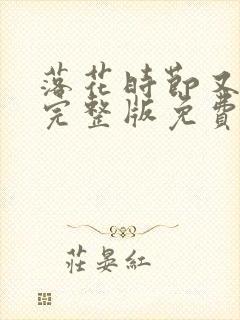 落花時節又
完整版免費
莊晏紅